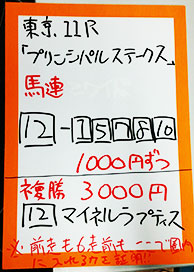 東京11R
「プリンシパルステークス」
馬連
12-1 5 7 8 10
1000円ずつ
複勝 3000円
12 マイネルラプティス
※前走も6走前も ここで圏内
に入れる力を証明!!